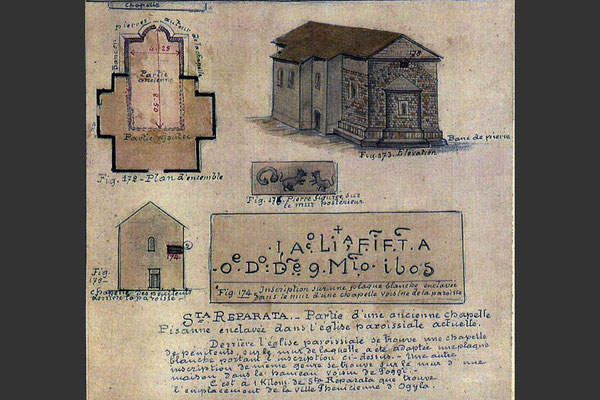 chapelle
Banc en pierres autour de la chapelle
4.25
Partie
ancienne
8.50
Partie ajoutée
Fig. 172 - Plan d'ensemble
175
Banc de pierre
Fig. 173. Elévation
Fig. 175. Pierre figurée sur
le mur postérieur
174
Fig.
178-
chapelle des pénitents
derrière la paroisse
·I, A LI FIFTA
·O D D 9. M 1605
Fig. 174. Inscription sur une plaque blanche enclavée
dans le mur d'une chapelle voisine de la paroisse
STA REPARATA. - Partie d'une ancienne chapelle
Pisanne enclavée dans l'église paroissiale actuelle.
Derrière l'église paroissiale se trouve une chapelle
de pénitents, sur le mur de laquelle a été adaptée une plaque
blanche portant l'inscription ci-dessus. - Une autre
inscription de même genre se trouve sur le mur d'une
maison dans le hameau voisin de Poggi.-
C'est à 1 Kilom. de Sta Reparata que trouve
l'emplacement de la ville Phénicienne d'Ogyla.